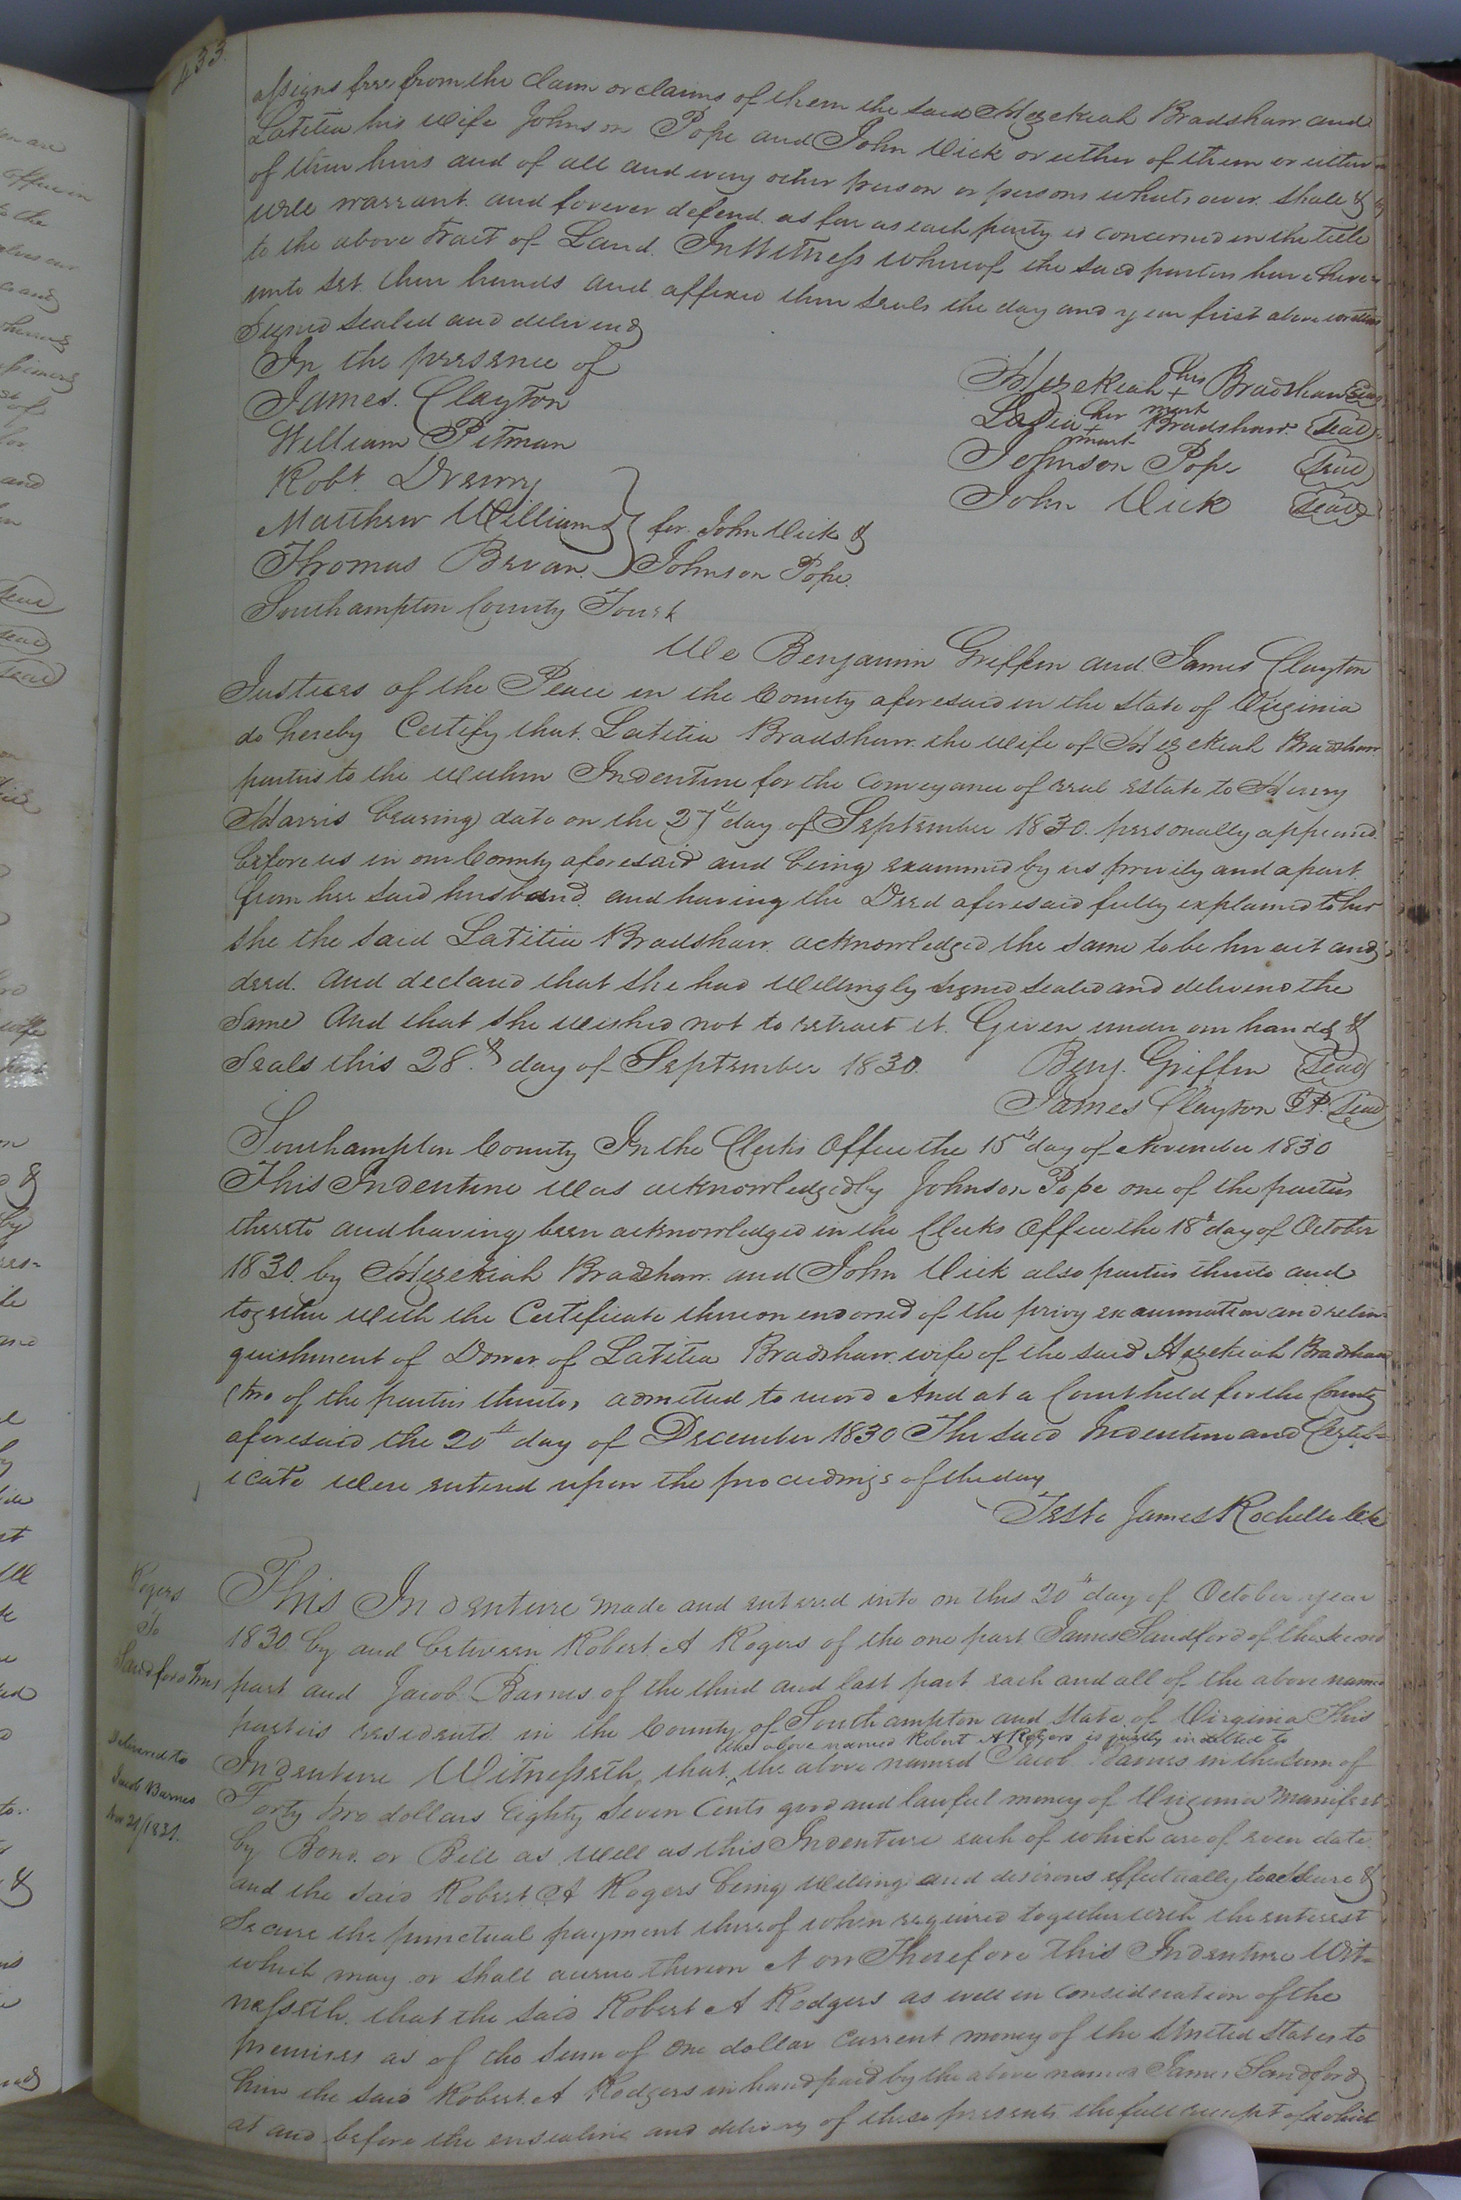 433.
assigns free from the claim or claims of them the said Hezekiah Bradshaw and
Latitia his wife Johnson Pope and John Vick or either of them or either
of their heirs and of all and every other person or persons whatsoever shall &
will warrant and forever defend as far as each party is concerned in the title
to the above Tract of Land. In Witness whereof the said parties have here-
unto set their hands and affixed their seals the day and year first above written
Signed sealed and delivered
In the presence of
James. Clayton
William Pitman
Robt. Drewry
Matthew Williams } for John Vick &
Thomas Bevan. } Johnson Pope.
Hezekiah his + mark Bradshaw Seal
Latia her + mark Bradshaw. Seal
Johnson Pope Seal
John Vick Seal
Southampton County Towit
We Benjamin Griffin and James Clayton
Justices of the Peace in the County aforesaid in the State of Virginia
do hereby Certify that Latitia Bradshaw the wife of Hezekiah Bradshaw
parties to the within Indenture for the conveyance of real estate to Henry
Harris bearing date on the 27th day of September 1830. personally appeared
before us in our County aforesaid and being examined by us privily and apart
from her said husband and having the Deed aforesaid fully explained to her
she the said Latitia Bradshaw acknowledged the same to be her act and
deed. And declared that she had willingly signed sealed and delivered the
same And that she wished not to retract it. Given under our hands &
Seals this 28th day of September 1830
Benj. Griffin Seal
James Clayton JP. Seal
Southampton County In the Clerks Office the 15th day of November 1830
This Indenture was acknowledged by Johnson Pope one of the parties
thereto and having been acknowledged in the Clerks Office the 18th day of October
1830. by Hezekiah Bradshaw and John Vick also parties thereto and
together with the Certificate thereon endorsed of the privy examination and relin-
quishment of Dower of Latitia Bradshaw wife of the said Hezekiah Bradshaw
(two of the parties thereto, admitted to record And at a Court held for the County
aforesaid the 20th day of December 1830 The said Indenture and Certif-
icate were entered upon the proceedings of the day
Teste James Rochelle Clk
Rogers
To
Sandford Trus
Delivered to
Jacob Barnes
Nov 21/1831.
This Indenture made and entered into on this 20th day of October year
1830 by and between Robert A Rogers of the one part James Sandford of the second
part and Jacob Barnes of the third and last part each and all of the above named
parties residents in the County of Southampton and State of Virginia This
the above named Robert A Rogers is justly indebted to
Indenture Witnesseth, that, the above named Jacob Barnes in the Sum of
Forty two dollars Eighty Seven Cents good and lawful money of Virginia manifest
by Bond or Bill as well as this Indenture each of which are of even date
and the said Robert A Rogers being willing and desirous effectually to assure &
Secure the punctual payment thereof when required together with the interest
which may or shall accrue thereon Now Therefore This Indenture Wit-
nesseth, that the said Robert A Rodgers as well in consideration of the
premises as of the Sum of One dollar Current money of the United States to
him the said Robert A Rodgers in hand paid by the above named James Sandford
at and before the ensealing and delivery of these presents the full receipt of which